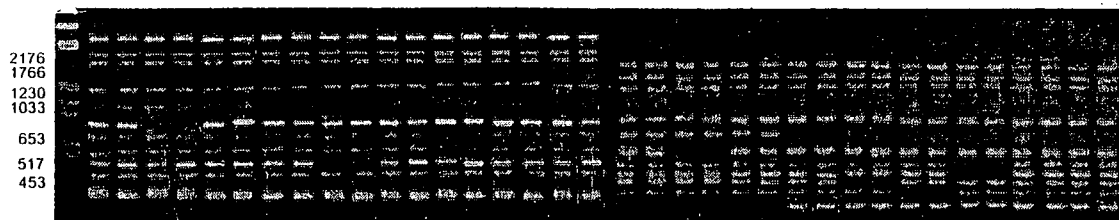 2176
1766
1230
1033
653
517
453